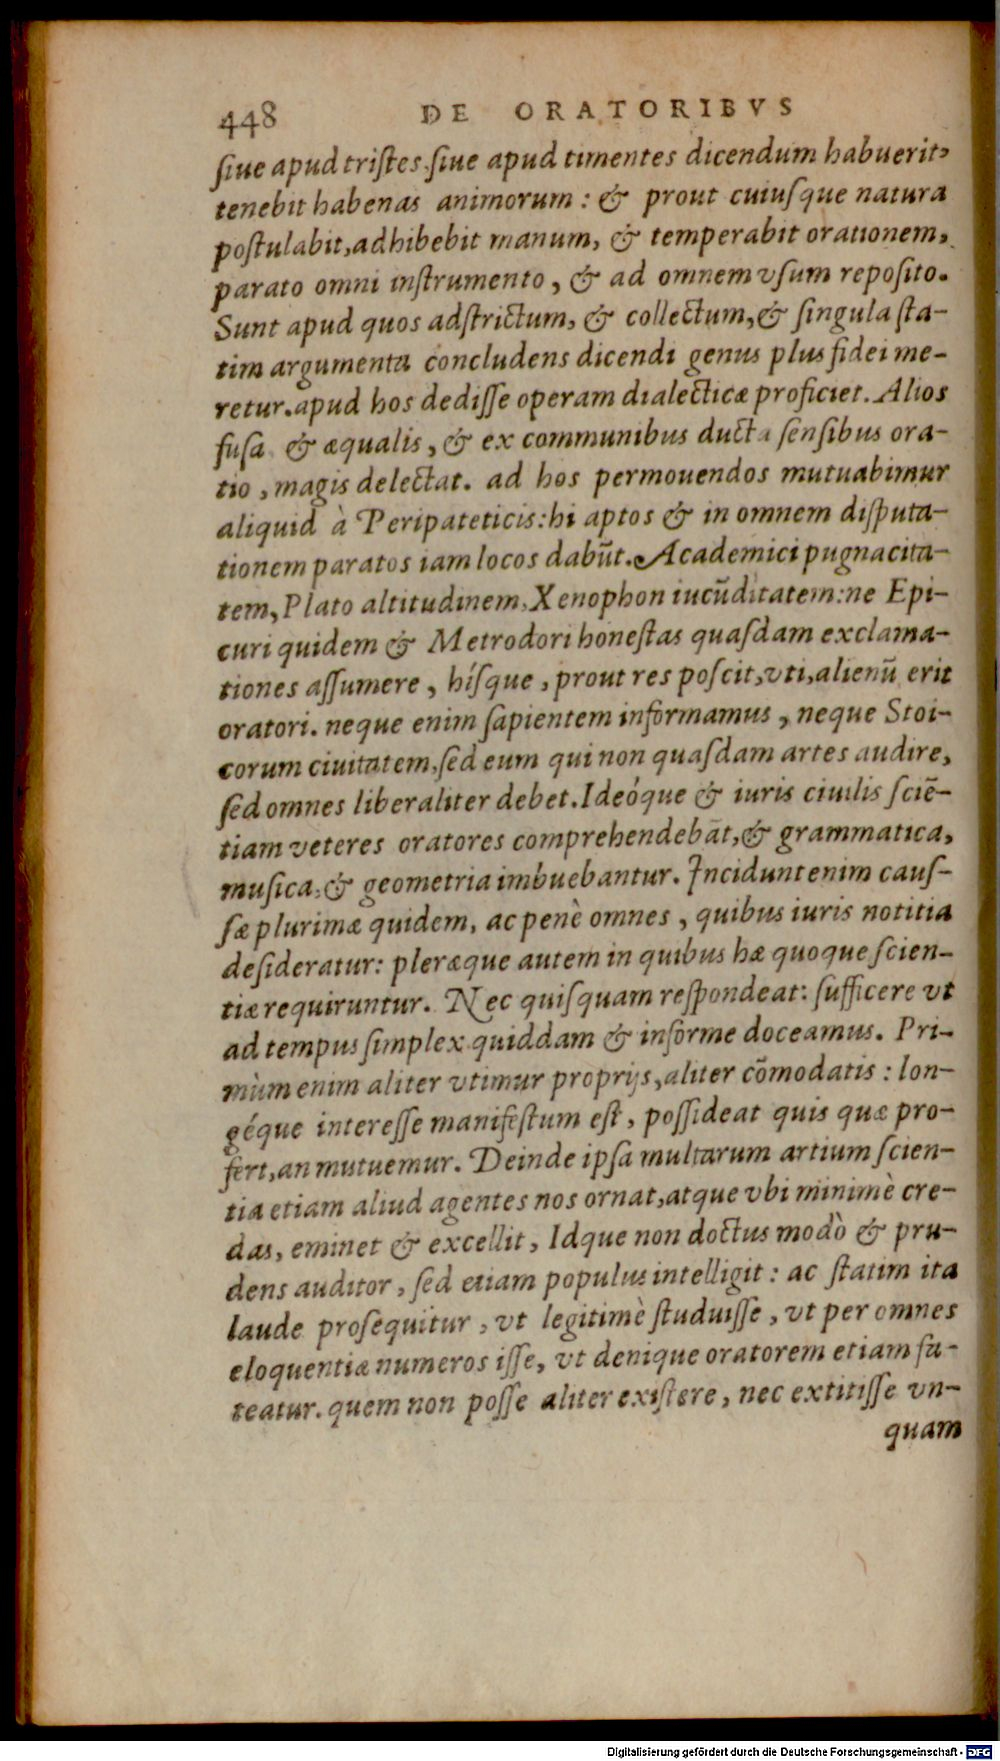 448 DE ORATORIBVS
ſiue apud triſtes, ſiue apud timentes dicendum habuerit,
tenebit habenas animorum : & prout cuiuſque natura
poſtulabit, adhibebit manum, & temperabit orationem,
parato omni inſtrumento, & ad omnem vſum repoſito.
Sunt apud quos adſtrictum, & collectum, & ſingula ſta-
tim argumenta concludens dicendi genus plus fidei me-
retur. apud hos dediſſe operam dialecticæ proficiet. Alios
fuſa & æqualis, & ex communibus ducta ſenſibus ora-
tio, magis delectat. ad hos permouendos mutuabimur
aliquid à Peripateticis: hi aptos & in omnem diſputa-
tionem paratos iam locos dabūt. Academici pugnacita-
tem, Plato altitudinem, Xenophon iucūditatem: ne Epi-
curi quidem & Metrodori honeſtas quaſdam exclama-
tiones aſſumere, híſque, prout res poſcit, vti, alienū erit
oratori. neque enim ſapientem informamus, neque Stoi-
corum ciuitatem, ſed eum qui non quaſdam artes audire,
ſed omnes liberaliter debet. Ideóque & iuris ciuilis ſciē-
tiam veteres oratores comprehendebāt, & grammatica,
muſica, & geometria imbuebantur. Incidunt enim cauſ-
ſæ plurimæ quidem, ac penè omnes, quibus iuris notitia
deſideratur: pleræque autem in quibus hæ quoque ſcien-
tiæ requiruntur. Nec quiſquam reſpondeat: ſufficere vt
ad tempus ſimplex quiddam & informe doceamus. Pri-
mùm enim aliter vtimur proprijs, aliter cōmodatis : lon-
géque intereſſe manifeſtum eſt, poſſideat quis quæ pro-
fert, an mutuemur. Deinde ipſa multarum artium ſcien-
tia etiam aliud agentes nos ornat, atque vbi minimè cre-
das, eminet & excellit, Idque non doctus modò & pru-
dens auditor, ſed etiam populus intelligit : ac ſtatim ita
laude proſequitur, vt legitimè ſtuduiſſe, vt per omnes
eloquentiæ numeros iſſe, vt denique oratorem etiam fa-
teatur. quem non poſſe aliter exiſtere, nec extitiſſe vn-
quam
Digitalisierung gefördert durch die Deutsche Forschungsgemeinschaft - DFG